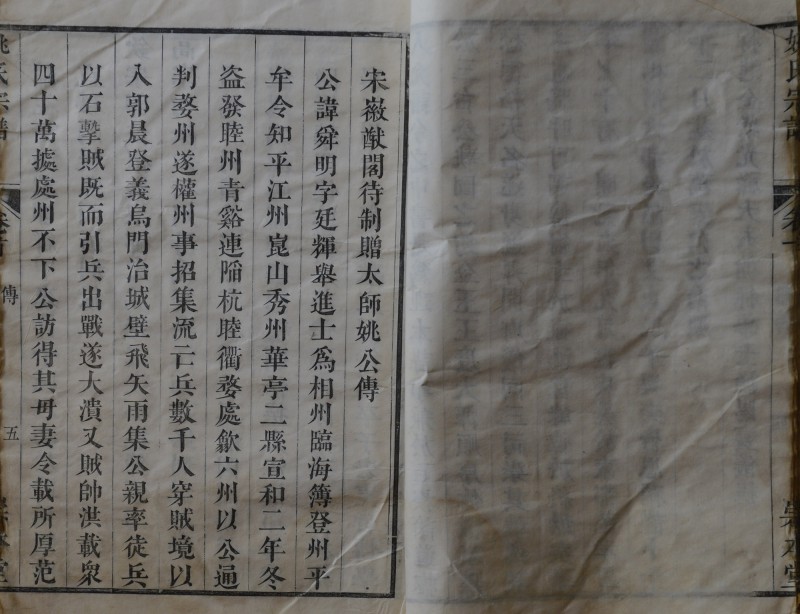 宋徽猷閣待制贈太師姚公傳
公諱舜明字廷輝舉進士爲相州臨海簿登州平
牟令知平江州崑山秀州華亭二縣宣和二年冬
盜發睦州青谿連陷杭睦衢婺處歙六州以公通
判婺州遂權州事招集流亡兵數千人穿賊境以
入郭晨登義烏門治城壁飛矢雨集公親率徒兵
以石擊賊既而引兵出戰遂大潰又賊帥洪載衆
四十萬據處州不下公訪得其母妻令載所厚范
姚氏宗譜
卷首
傳
五
姚氏宗譜